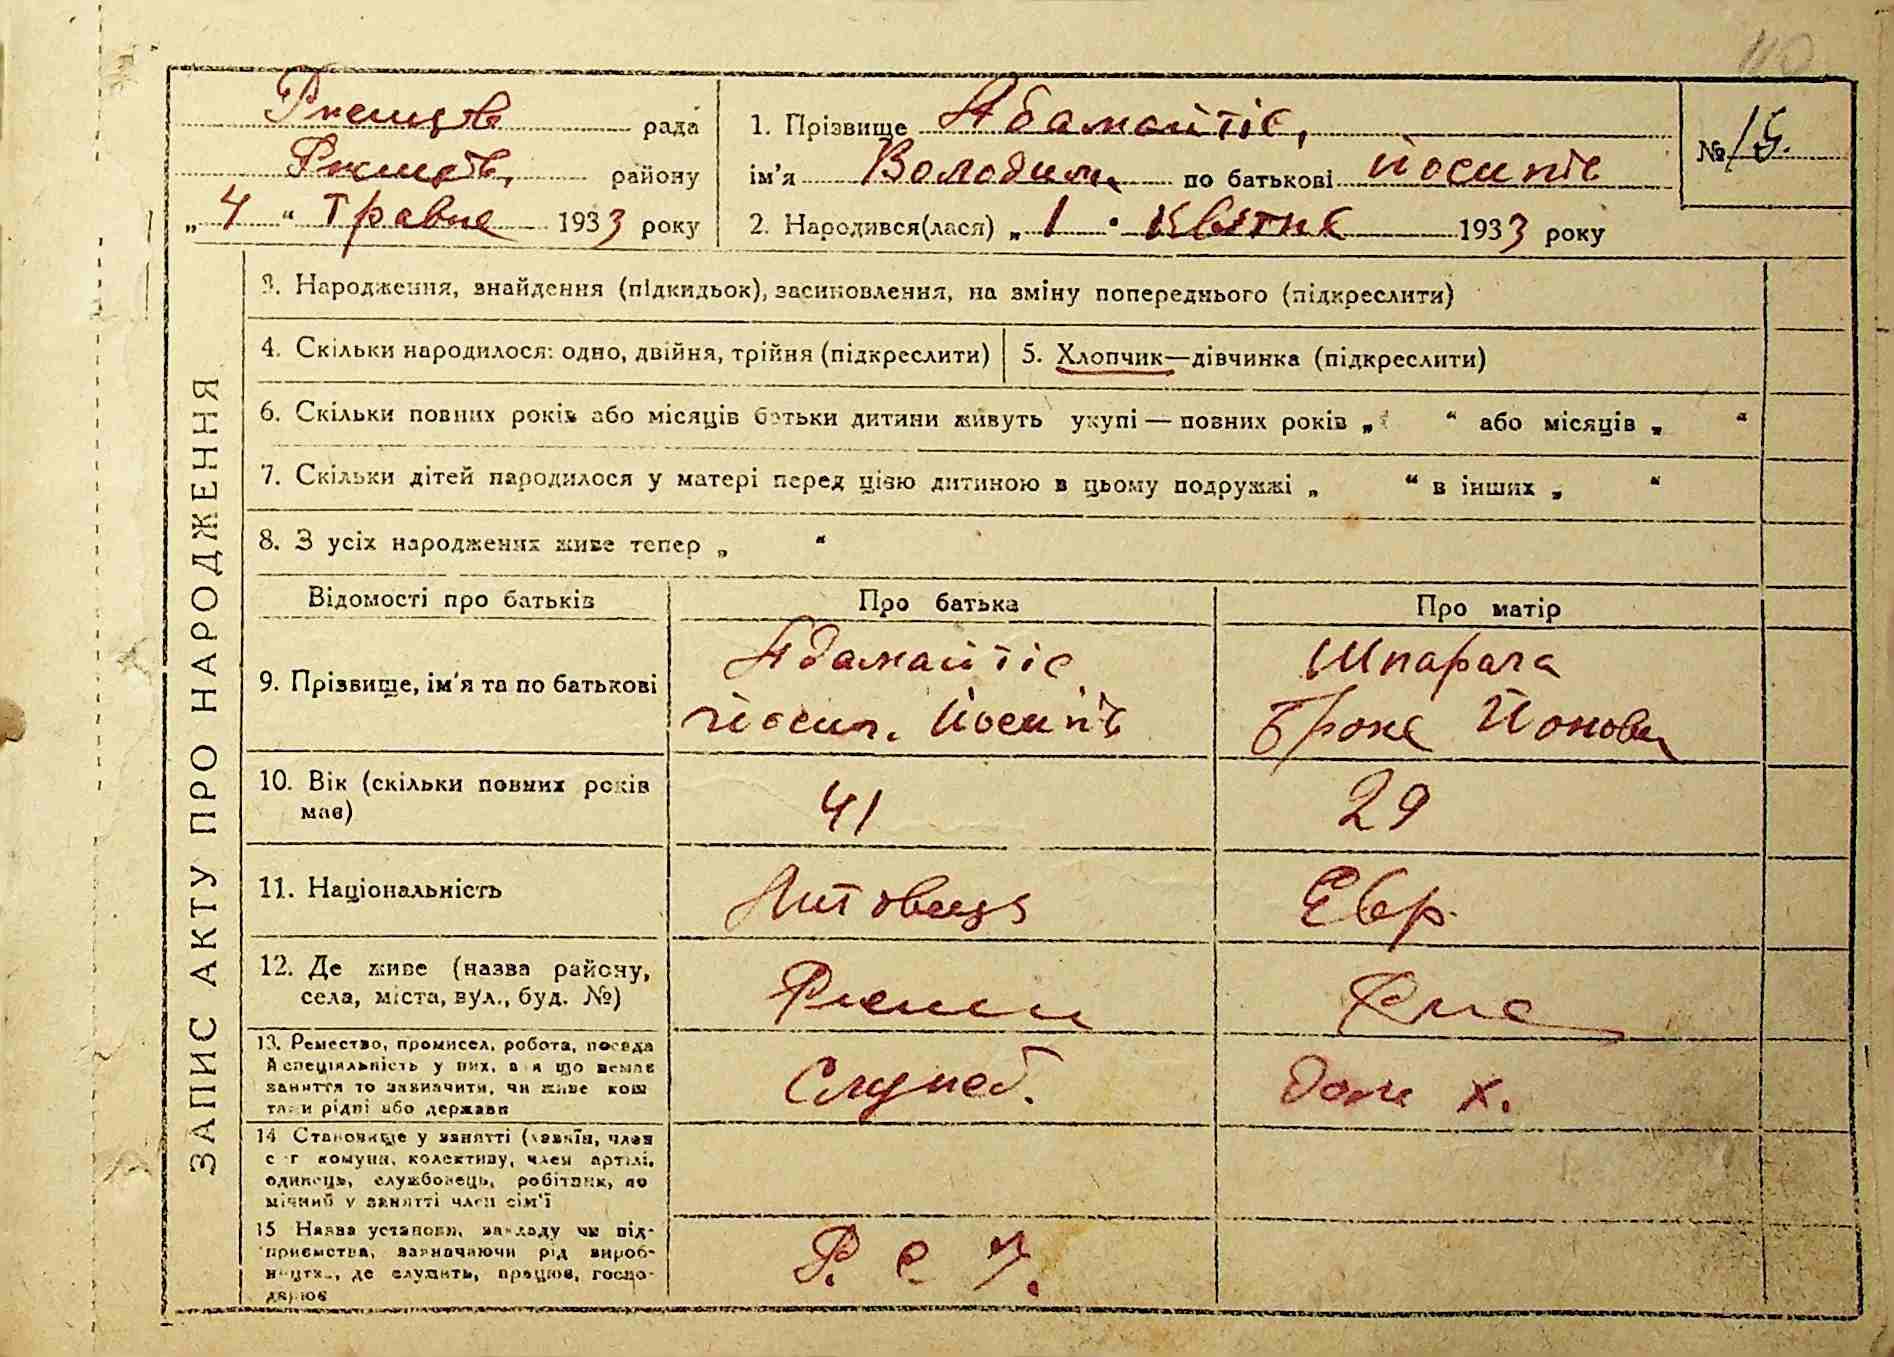 Ржищів рада
району
„4“ Травня 1933 року
1. Прізвище Адамайтіс,
ім'я Володим. по батькові Йосипів
2. Народився(лася) „1“ Квітня 1933 року
№ 15.
ЗАПИС АКТУ ПРО НАРОДЖЕННЯ
3. Народження, знайдення (підкидьок), засиновлення, на зміну попереднього (підкреслити)
4. Скільки народилося: одно, двійня, трійня (підкреслити)
5. Хлопчик—дівчинка (підкреслити)
6. Скільки повних років або місяців батьки дитини живуть укупі — повних років „ “ або місяців „ “
7. Скільки дітей народилося у матері перед цією дитиною в цьому подружжі „ “ в інших „ “
8. З усіх народжених живе тепер „ “
Відомості про батьків
Про батька
Про матір
9. Прізвище, ім'я та по батькові
Адамайтіс
Йосип. Йосипів
Шпарага
Броня Йоновн
10. Вік (скільки повних років
має)
41
29
11. Національність
Литовець
Євр.
12. Де живе (назва району,
села, міста, вул., буд. №)
13. Ремество, промисел, робота, посада
й спеціяльність у них, а я що немає
заняття то зазначити, чи живе кош
тами рідні або держави
Служб.
Дом х.
14 Становище у занятті (хазяїн, член
с г комуни, колективу, член артілі,
одинець, службовець, робітник, по
мічний у занятті член сім'ї
15 Назва установи, закладу чи під-
приємства, зазначаючи рід вироб-
ництва, де служить, працює, госпо-
дарює
Р. С